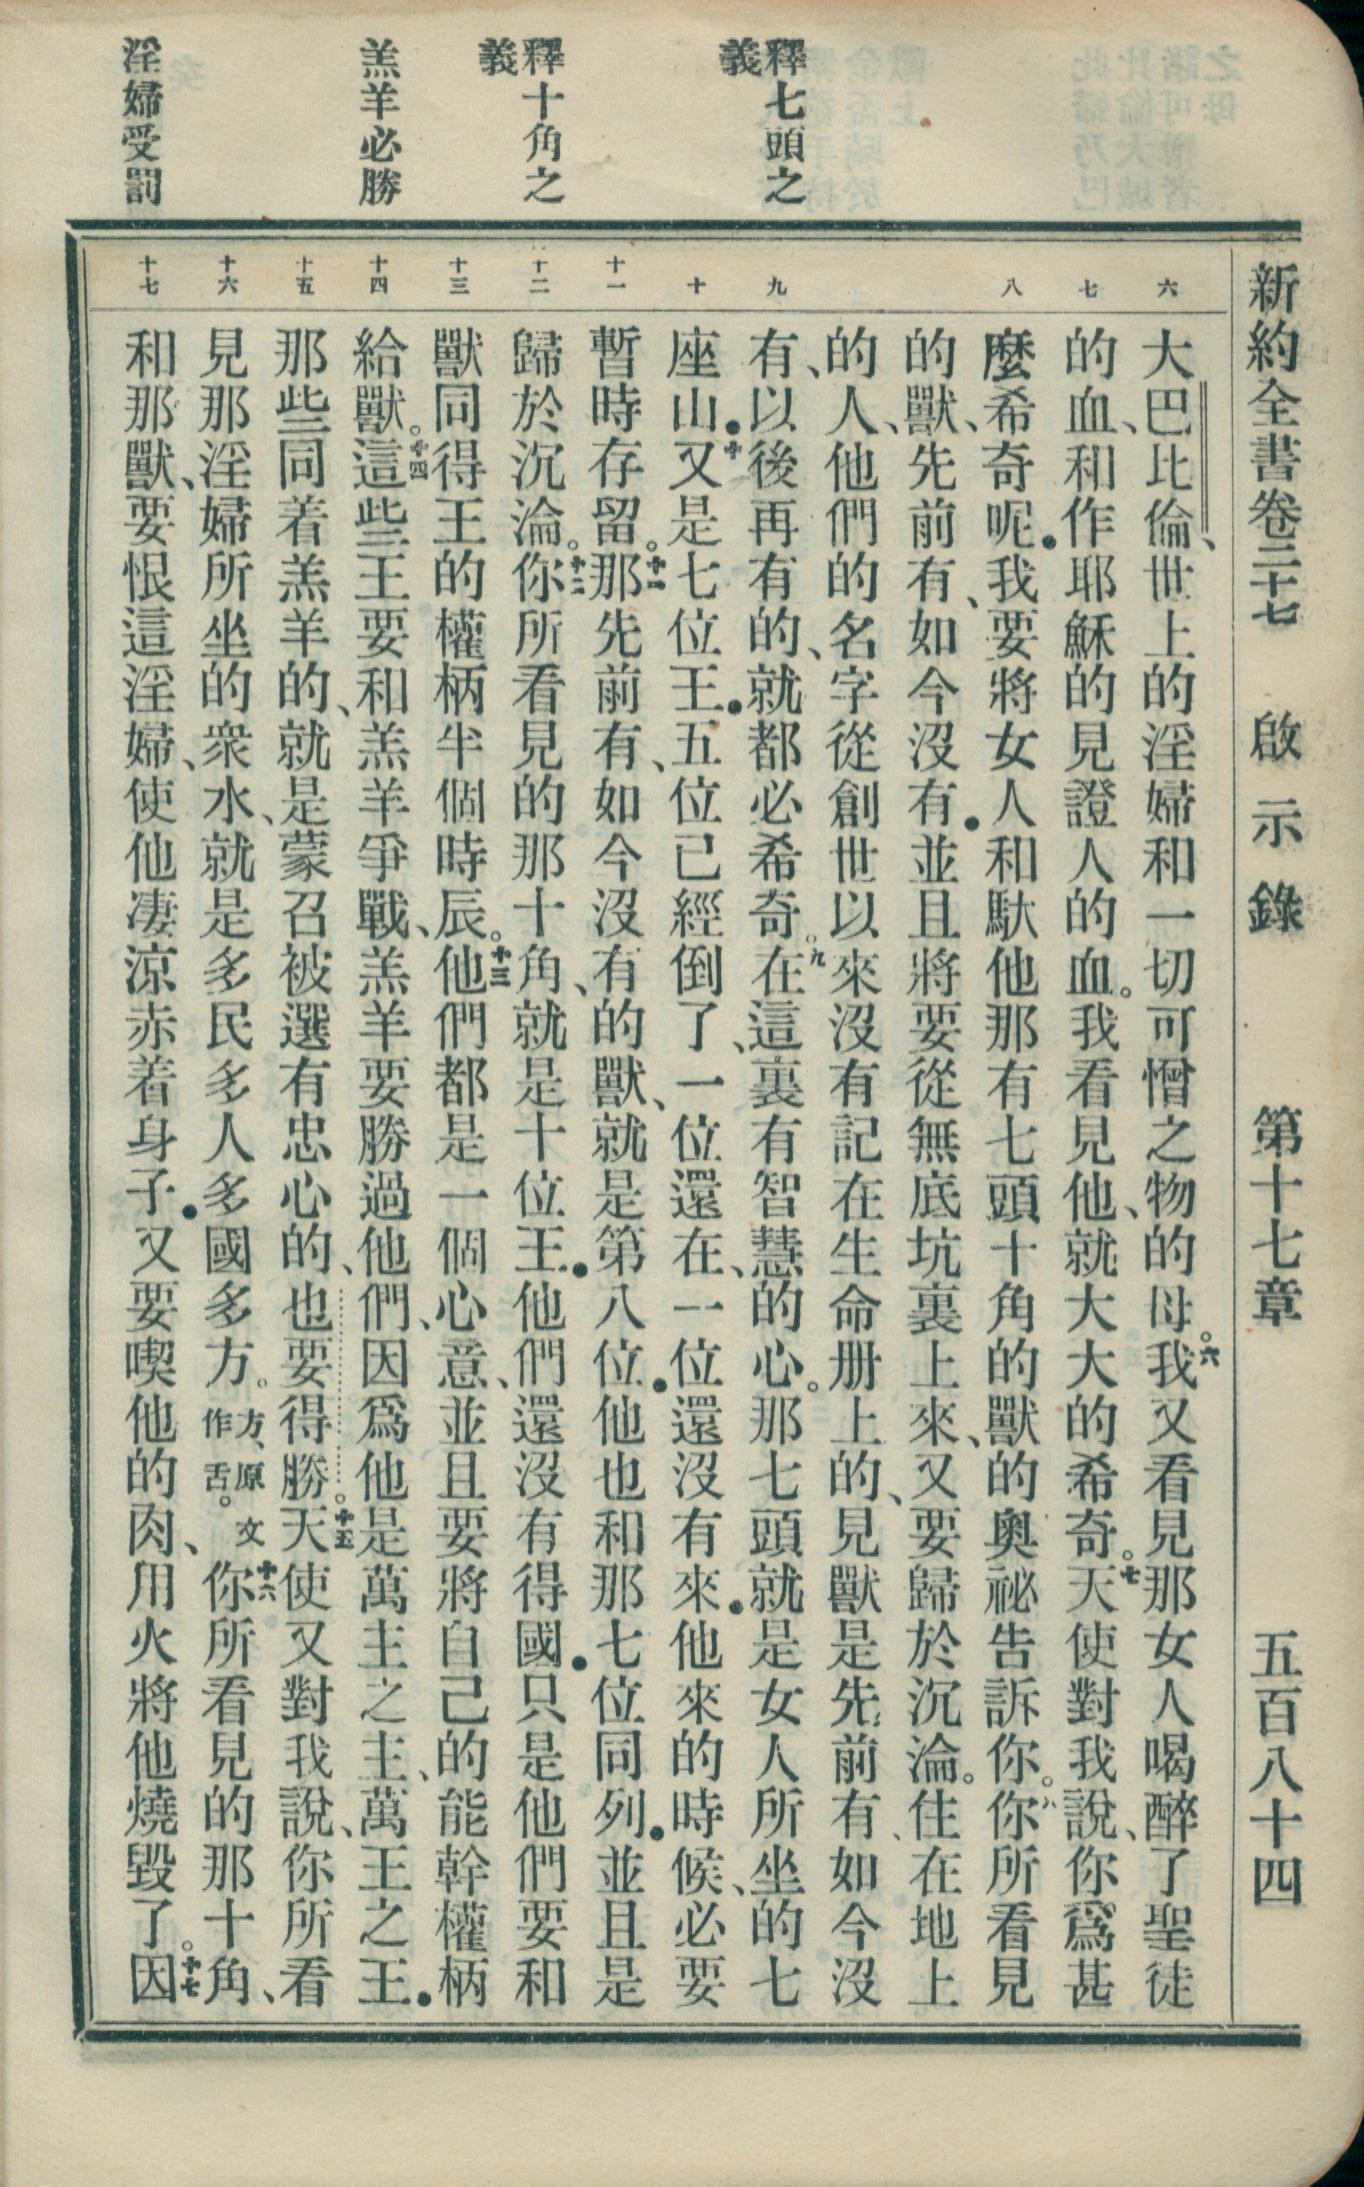 新約全書卷二十七　啟示錄　第十七章　五百八十四
釋七頭之
義
釋十角之
義
羔羊必勝
淫婦受罰
六
七
八
九
十
十一
十二
十三
十四
十五
十六
十七
大巴比倫、世上的淫婦和一切可憎之物的母。六我又看見那女人喝醉了聖徒
的血、和作耶穌的見證人的血。我看見他、就大大的希奇。七天使對我說、你爲甚
麼希奇呢●我要將女人和馱他那有七頭十角的獸的奧祕告訴你。八你所看見
的獸、先前有、如今沒有●並且將要從無底坑裏上來、又要歸於沉淪。住在地上
的人、他們的名字從創世以來沒有記在生命册上的、見獸是先前有、如今沒
有、以後再有的、就都必希奇。九在這裏有智慧的心。那七頭就是女人所坐的七
座山●十又是七位王●五位已經倒了、一位還在、一位還沒有來●他來的時候、必要
暫時存留。十一那先前有、如今沒有的獸、就是第八位●他也和那七位同列●並且是
歸於沉淪。十二你所看見的那十角、就是十位王●他們還沒有得國●只是他們要和
獸同得王的權柄半個時辰。十三他們都是一個心意、並且要將自己的能幹權柄
給獸。十四這些王要和羔羊爭戰、羔羊要勝過他們、因爲他是萬主之主、萬王之王●
那些同着羔羊的、就是蒙召被選有忠心的、也要得勝。十五天使又對我說、你所看
見那淫婦所坐的衆水、就是多民多人多國多方。方、原文作舌。十六你所看見的那十角、
和那獸、要恨這淫婦、使他凄涼赤着身子●又要喫他的肉、用火將他燒毀了。十七因